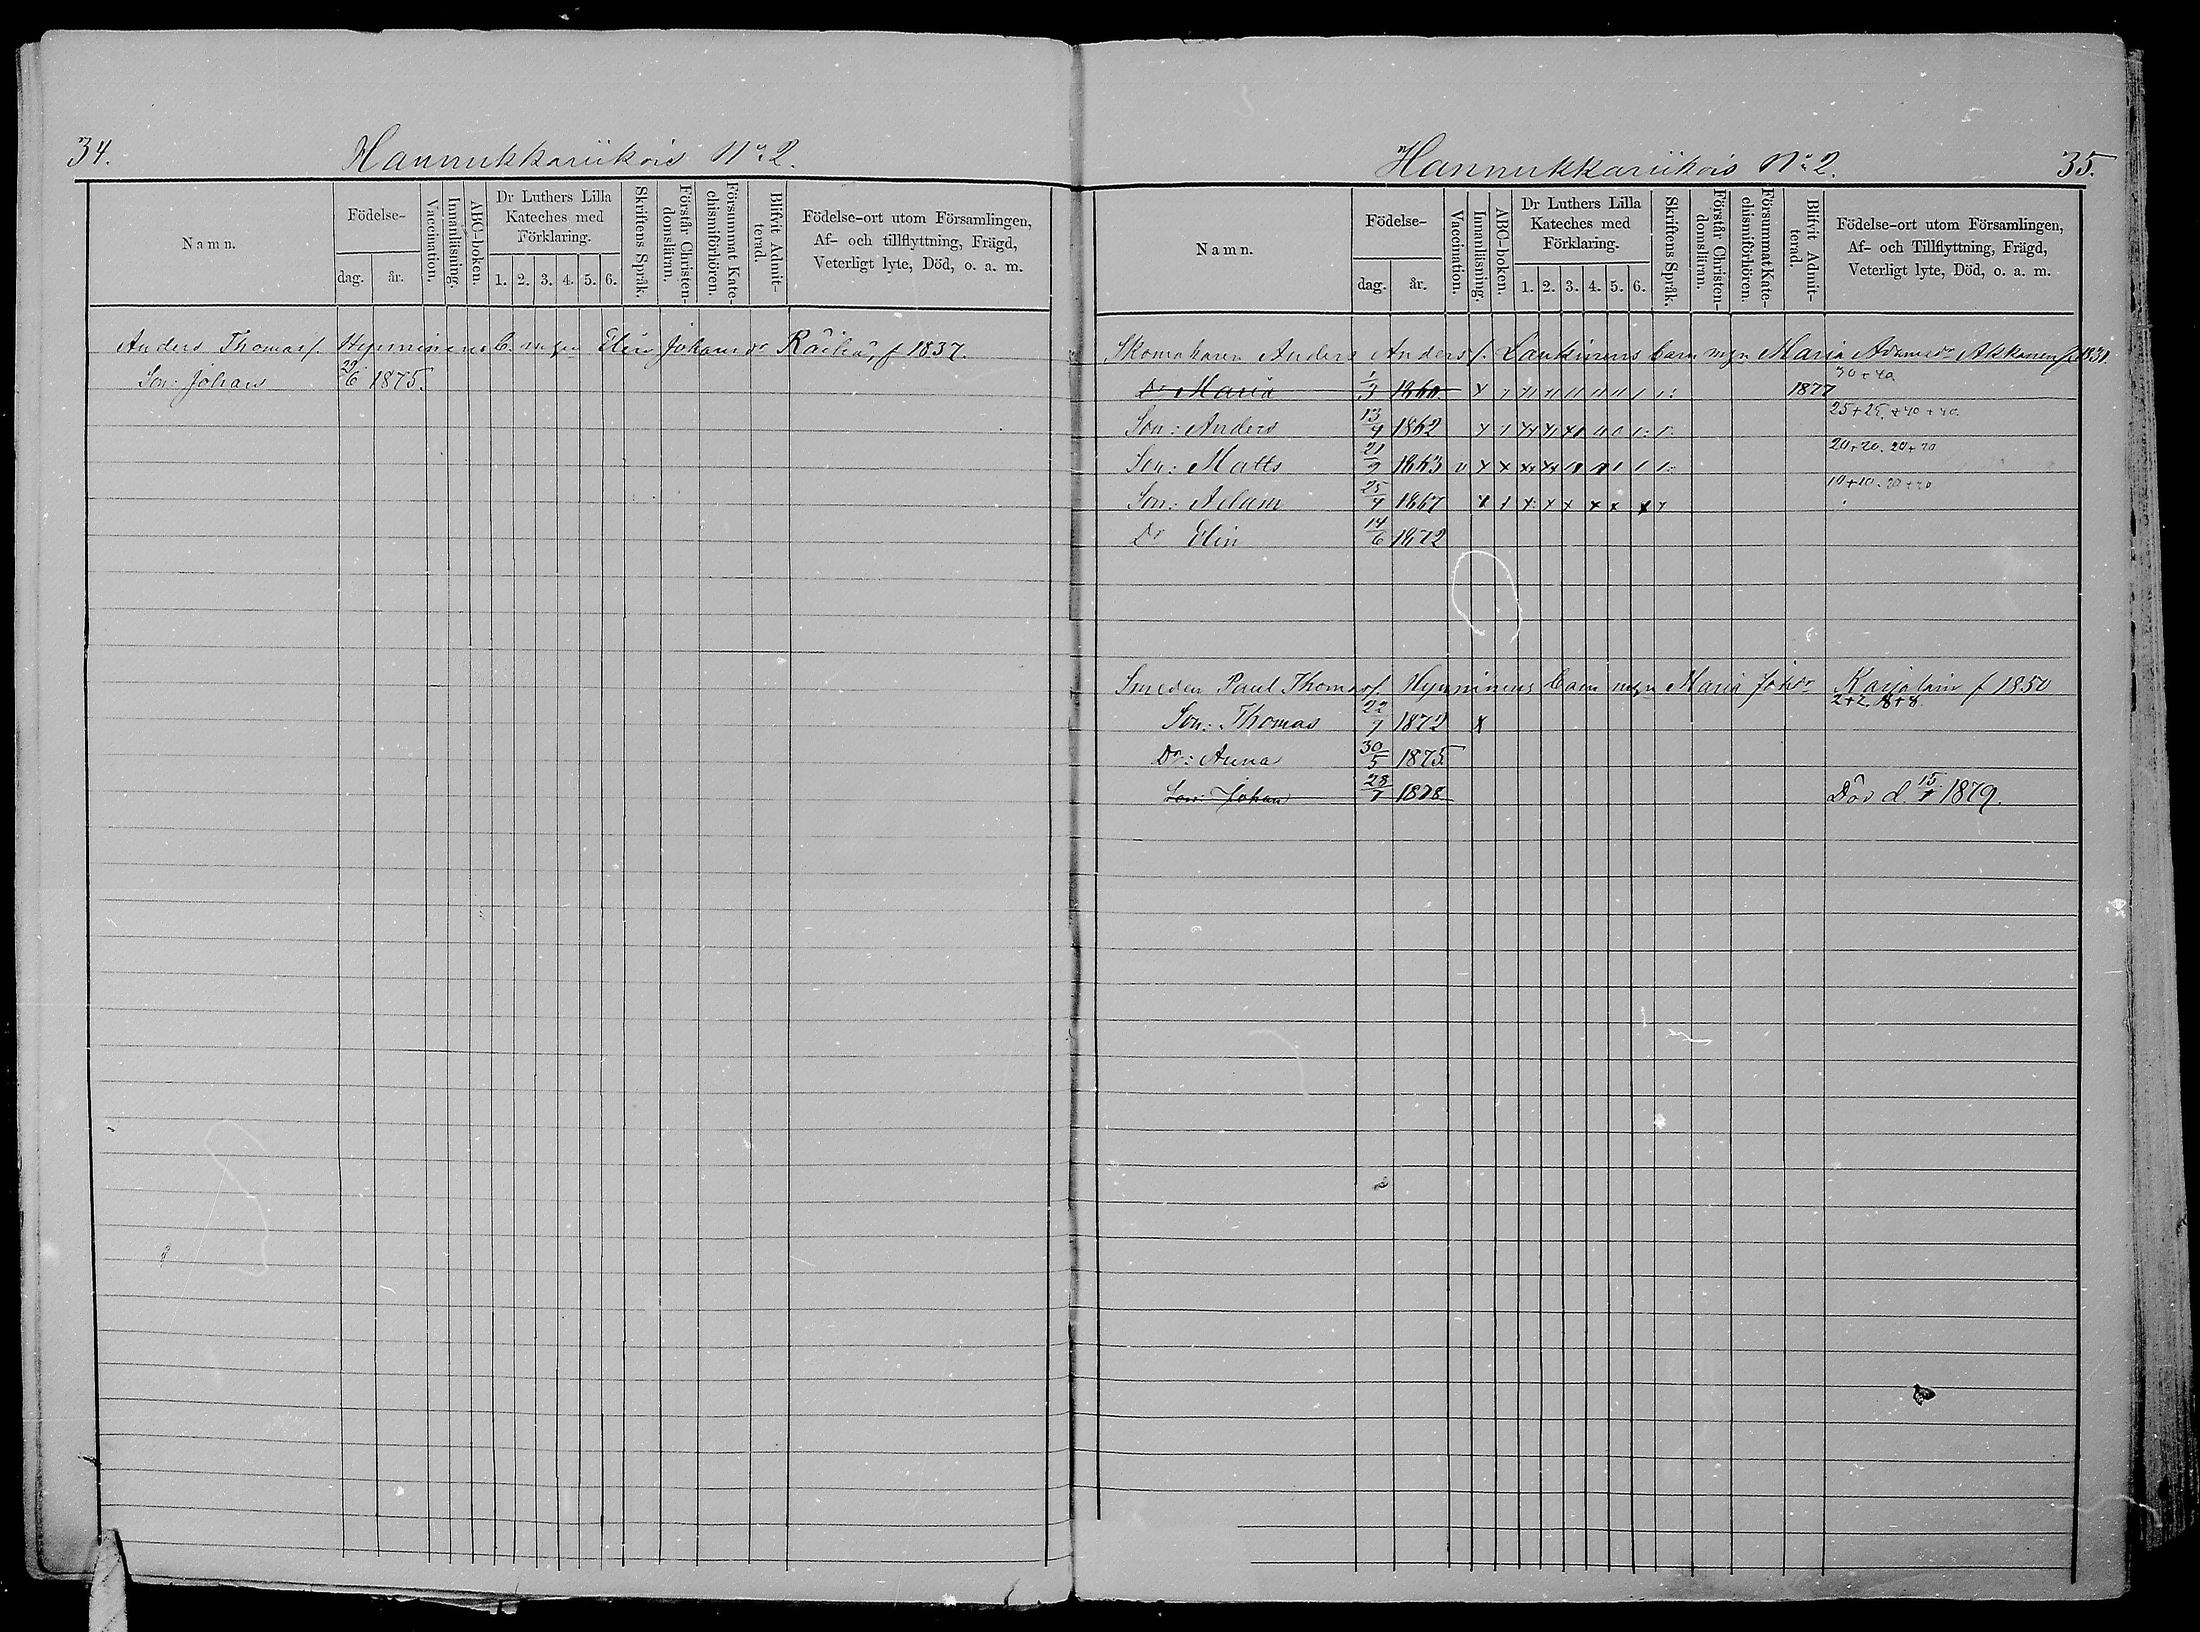 34.
Hannukkariikois No 2.
Namn.
Födelse-
dag.
år.
Vaccination.
Innanläsning.
ABC-boken.
Dr Luthers Lilla Kateches med Förklaring.
1. 2. 3. 4. 5. 6.
Skriftens Språk.
Förstår Christendomsläran.
Försummat Katechismiförhören.
Blifvit Admitterad.
Födelse-ort utom Församlingen,
Af- och tillflyttning, Frägd,
Veterligt lyte, Död, o. a. m.
Anders Thomass. Hyminens B. m Elin Johansdr f 1837.
Son: Johan 29/6 1875.
Hannukkariikois No 2.
35.
Namn.
Födelse-
dag.
år.
Vaccination.
Innanläsning.
ABC-boken.
Dr Luthers Lilla Kateches med Förklaring.
1. 2. 3. 4. 5. 6.
Skriftens Språk.
Förstår Christendomsläran.
Försummat Katechismiförhören.
Blifvit Admitterad.
Födelse-ort utom Församlingen,
Af- och Tillflyttning, Frägd,
Veterligt lyte, Död, o. a. m.
Skomakaren Anders Anders s. Laukinens barn m Maria Adamsdr Akkanen f 1831.
Dr Maria 1/3 1860 1877 30+40
Son: Anders 13/4 1862 25+25. +40+40
Son: Matts 21/9 1863 v 20+20. 20+20
Son: Adam 25/4 1867 10+10. 20+20
Dr Elin 14/6 1872
Smeden Paul Thomass. Hyminens barn m Maria Johdr Karjalain f 1850
Son: Thomas 22/7 1872 x 2+2. 8+8
Dr: Anna 30/5 1875
Son: Johan 28/7 1878 Död d. 15/1 1879.